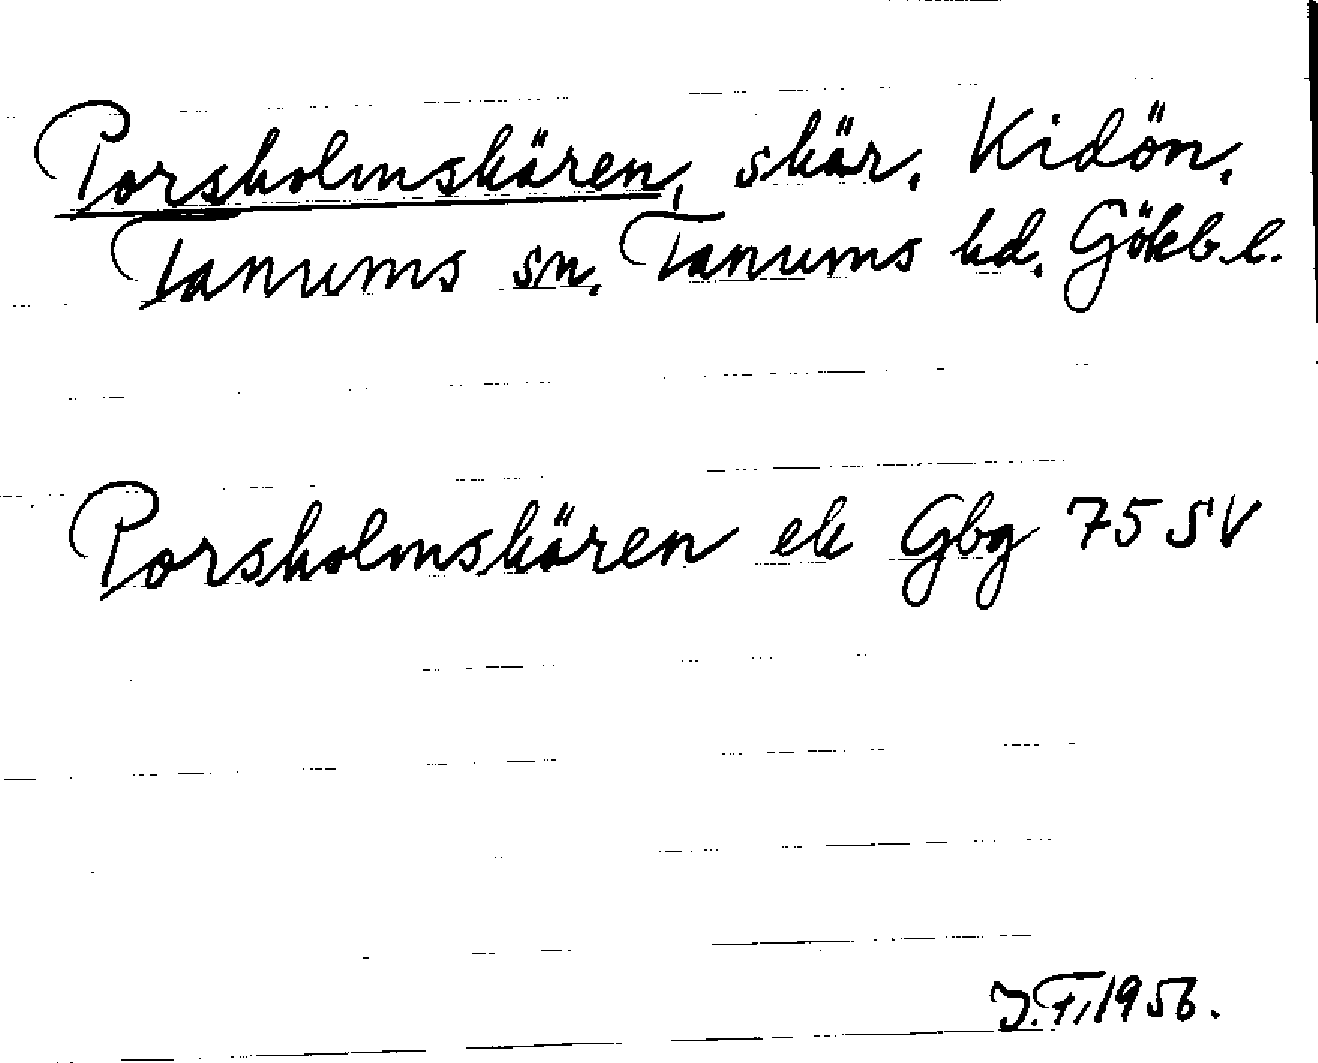 Porsholmskären, skär, Kidön,
Tanums sn. Tanums hd. Gökb. l.
Porsholmskären ek Gbg 75 SV
J.F. 1956.